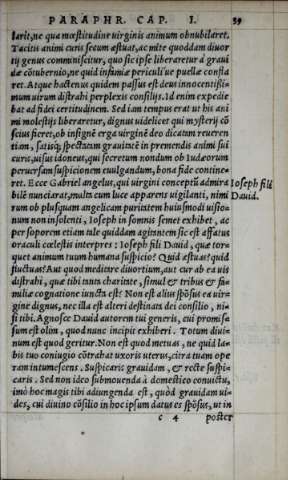 PARAPHR. CAP. I. 59
larit, ne qua mœstitudine uirginis animum obnubilaret.
Tacitus animi curis secum æstuat, ac mite quoddam diuor
tij genus comminiscitur, quo sic ipse liberaretur à graui
dæ cōtubernio, ne quid infamiæ periculi'ue puellæ confla
ret. Atque hactenus quidem passus est deus innocentissi=
mum uirum distrahi perplexis consilijs. Id enim expedie
bat ad fidei certitudinem. Sed iam tempus erat ut his ani
mi molestijs liberaretur, dignus uidelicet qui mysterij cō
scius fieret, ob insignē erga uirginē deo dicatum reueren
tiam, satisq; spectatam grauitatē in premendis animi sui
curis, uisus idoneus, qui secretum nondum ob Iudæorum
peruersam suspicionem euulgandum, bona fide contine=
ret. Ecce Gabriel angelus, qui uirgini conceptū admira
bilē nunciarat, multa cum luce apparens uigilanti, nimi
rum ob plusquam angelicam puritatem huiusmodi uisio=
num non insolenti, Ioseph in somnis semet exhibet, ac
per soporem etiam tale quiddam agitantem sic est affatus
oraculi cœlestis interpres: Ioseph fili Dauid, quæ tor=
quet animum tuum humana suspicio? Quid æstuas? quid
fluctuas? Aut quod meditare diuortium, aut cur ab ea uis
distrahi, quæ tibi iuncta charitate, simul & tribus & fa=
miliæ cognatione iuncta est? Non est alius spōsus ea uir=
gine dignus, nec illa est alteri destinata dei consilio, ni=
si tibi. Agnosce Dauid autorem tui generis, cui promissa
sum est olim, quod nunc incipit exhiberi. Totum diui=
num est quod geritur. Non est quod metuas, ne quid la=
bis tuo coniugio cōtrahat uxoris uterus, citra tuam ope
ram intumescens. Suspicaris grauidam, & recte suspi=
caris. Sed non ideo submouenda à domestico conuictu,
imò hoc magis tibi adiungenda est, quòd grauidam ui=
des, cui diuino cōsilio in hoc ipsum datus es spōsus, ut in
c 4 poster
Ioseph fili
Dauid.